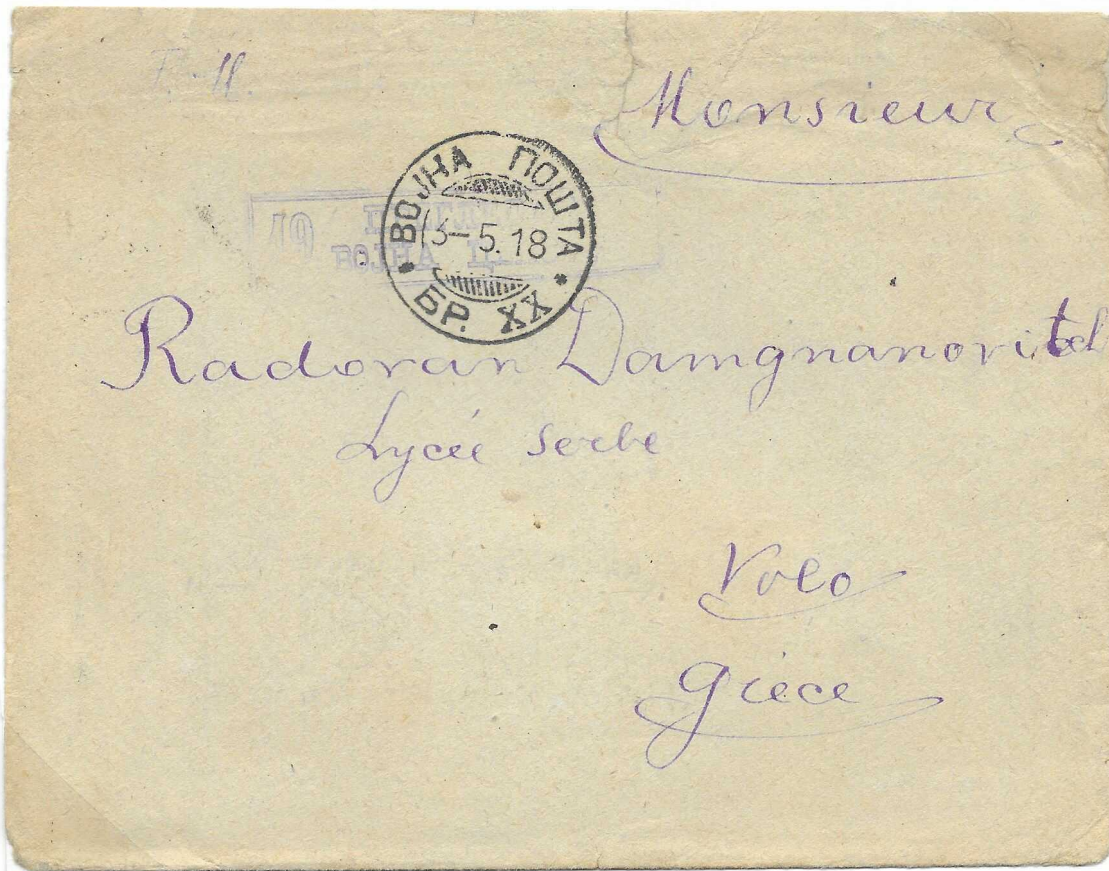 F. M.
Monsieur
ВОЈНА ПОШТА
3-5.18
БР. XX
49
ВОЈНА
Radovan Damgnanovitch
Lycée Serbe
Volo
Grèce